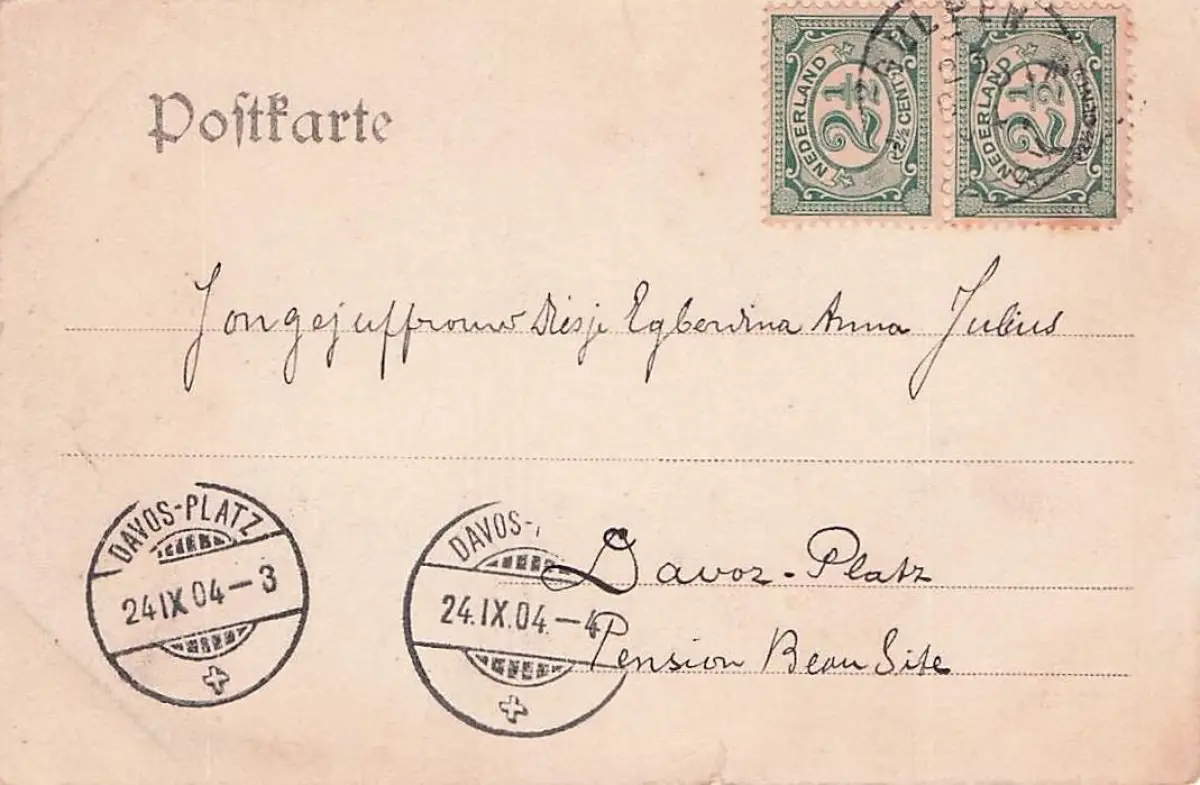 Postkarte
NEDERLAND 2½ 2½ CENT
NEDERLAND 2½ 2½ CENT
GULPEN
Jongejuffrouw Diesje Egberdina Anna Julius
DAVOS-PLATZ
24 IX 04-3
DAVOS-
24.IX.04.-4
Davoz-Platz
Pension Beau Site